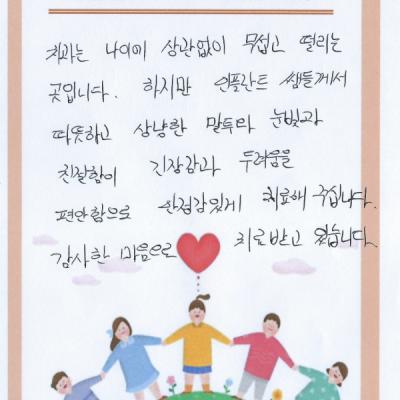 치과는 나이에 상관없이 무섭고 떨리는
곳입니다. 하지만 임플란트 쌤들께서
따뜻하고 상냥한 말투와 눈빛과
친절함이 긴장감과 두려움을
편안함으로 안정감있게 치료해 주십니다.
감사한 마음으로 치료받고 있습니다.